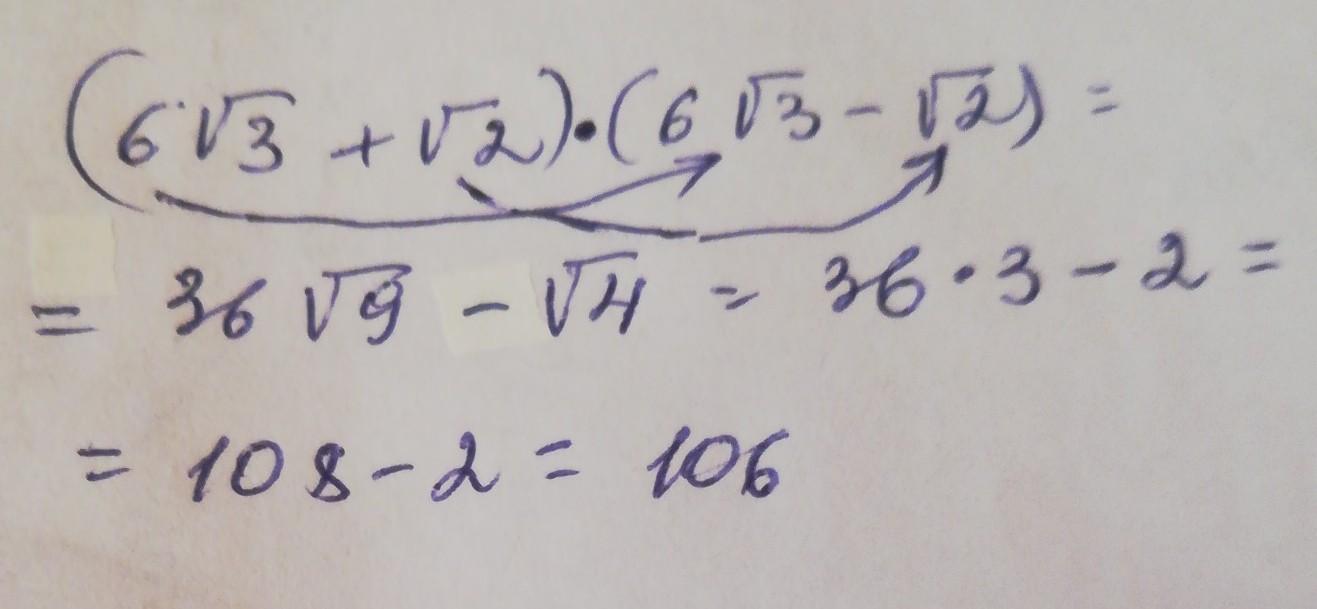 (6√3 + √2)·(6√3 - √2) =
= 36√9 - √4 = 36·3 - 2 =
= 108 - 2 = 106